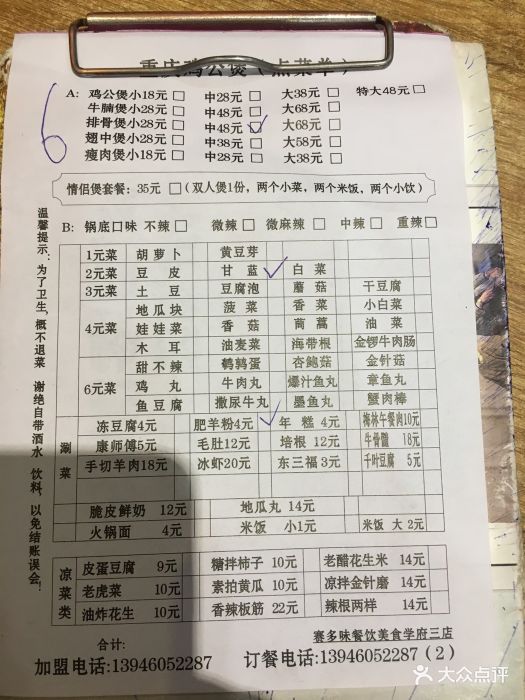 重庆鸡公煲(点菜单)
6
A: 鸡公煲小18元□ 中28元□ 大38元□ 特大48元□
牛腩煲小28元□ 中48元□ 大68元□
排骨煲小28元□ 中48元□ 大68元□
翅中煲小28元□ 中38元□ 大58元□
瘦肉煲小18元□ 中28元□ 大38元□
情侣煲套餐: 35元□(双人煲1份, 两个小菜, 两个米饭, 两个小饮)
B: 锅底口味 不辣□ 微辣□ 微麻辣□ 中辣□ 重辣□
温馨提示: 为了卫生, 概不退菜 谢绝自带酒水 饮料, 以免结账误会!
1元菜 胡萝卜 黄豆芽
2元菜 豆皮 甘蓝 白菜
3元菜 土豆 豆腐泡 蘑菇 干豆腐
4元菜 地瓜块 菠菜 香菜 小白菜
娃娃菜 香菇 茼蒿 油菜
木耳 油麦菜 海带根 金锣牛肉肠
6元菜 甜不辣 鹌鹑蛋 杏鲍菇 金针菇
鸡丸 牛肉丸 爆汁鱼丸 章鱼丸
鱼豆腐 撒尿牛丸 墨鱼丸 蟹肉棒
涮菜 冻豆腐4元 肥羊粉4元 年糕4元 梅林午餐肉10元
康师傅5元 毛肚12元 培根12元 牛骨髓18元
手切羊肉18元 冰虾20元 东三福3元 千叶豆腐5元
脆皮鲜奶 12元 地瓜丸 14元
火锅面 4元 米饭 小1元 米饭 大2元
凉菜类 皮蛋豆腐 9元 糖拌柿子 10元 老醋花生米 14元
老虎菜 10元 素拍黄瓜 10元 凉拌金针磨 14元
油炸花生 10元 香辣板筋 22元 辣根两样 14元
合计: 赛多味餐饮美食学府三店
加盟电话:13946052287 订餐电话:13946052287(2)
大众点评